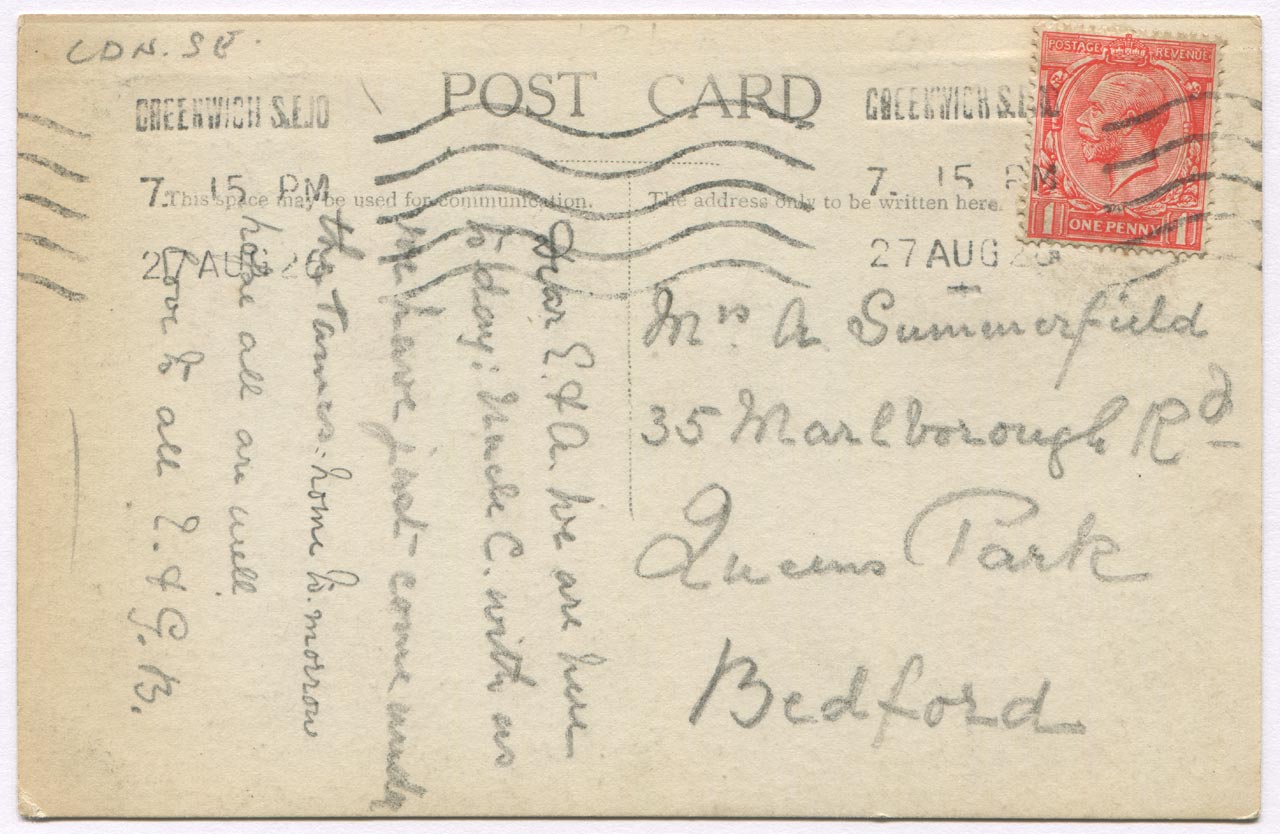 LDN. SE.
POST CARD
GREENWICH S.E.10
7. 15 PM
27 AUG 26
GREENWICH S.E.1
7. 15 PM
27 AUG 26
POSTAGE REVENUE
1 ONE PENNY 1
This space may be used for communication.
The address only to be written here.
Dear E. & A. We are here
to day: Uncle C. with us
we have just come under
the Thames: home to.morrow
hope all are well
Love to all E. & G. B.
Mrs A Summerfield
35 Marlborough Rd
Queens Park
Bedford